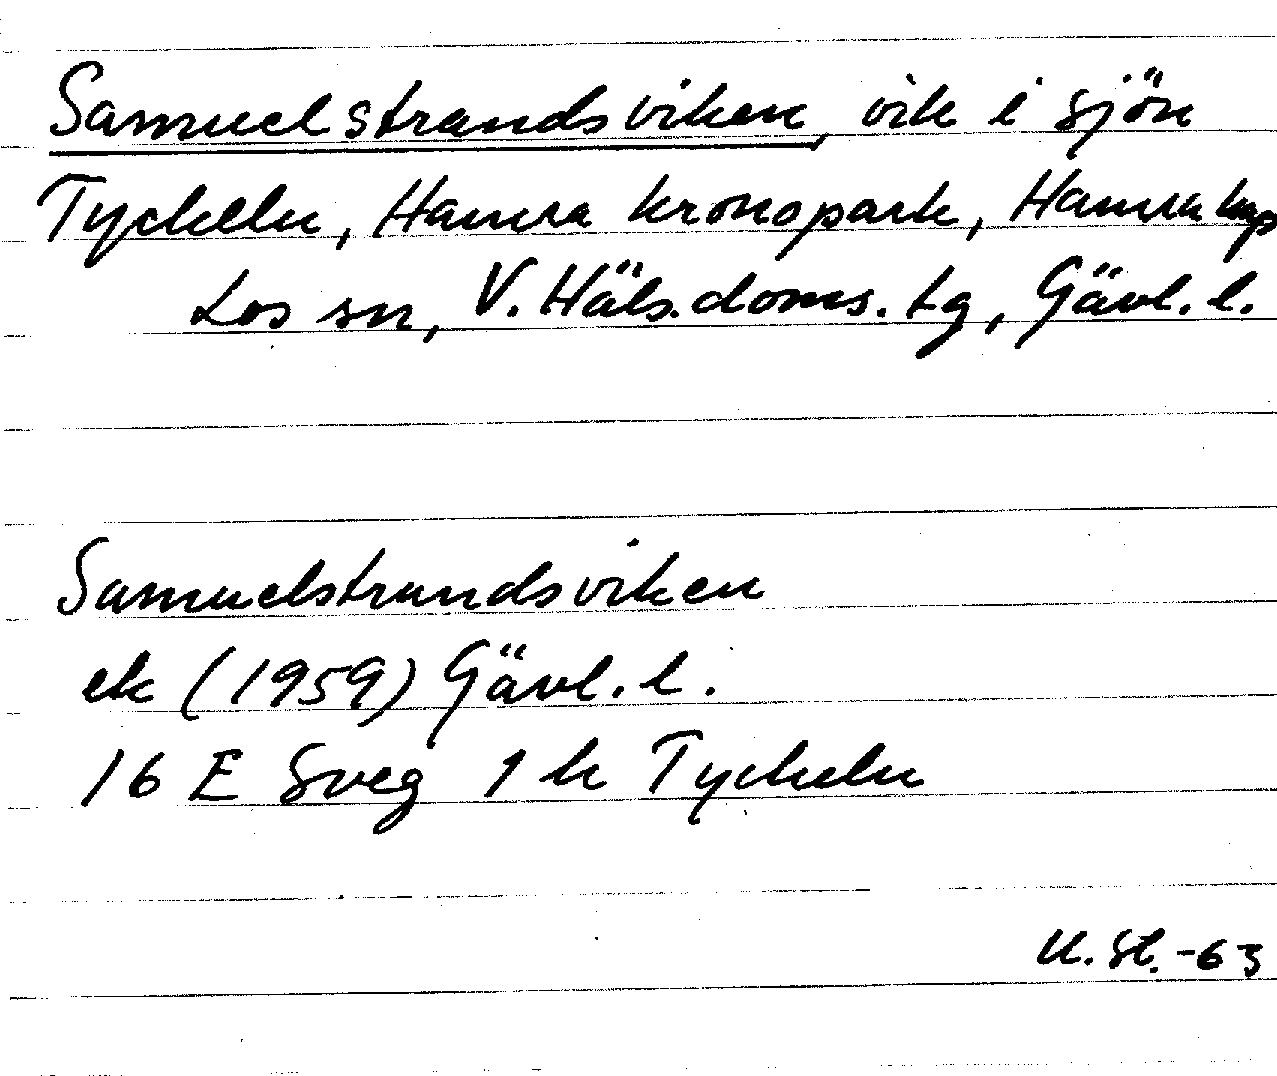 Samuelstrandsviken, vik i sjön
Tyckeln, Hamra kronopark, Hamra kap
Los sn, V. Häls. doms. tg, Gävl. l.
Samuelstrandsviken
ek (1959) Gävl. l.
16 E Sveg 1 h Tyckeln
U. St. -63